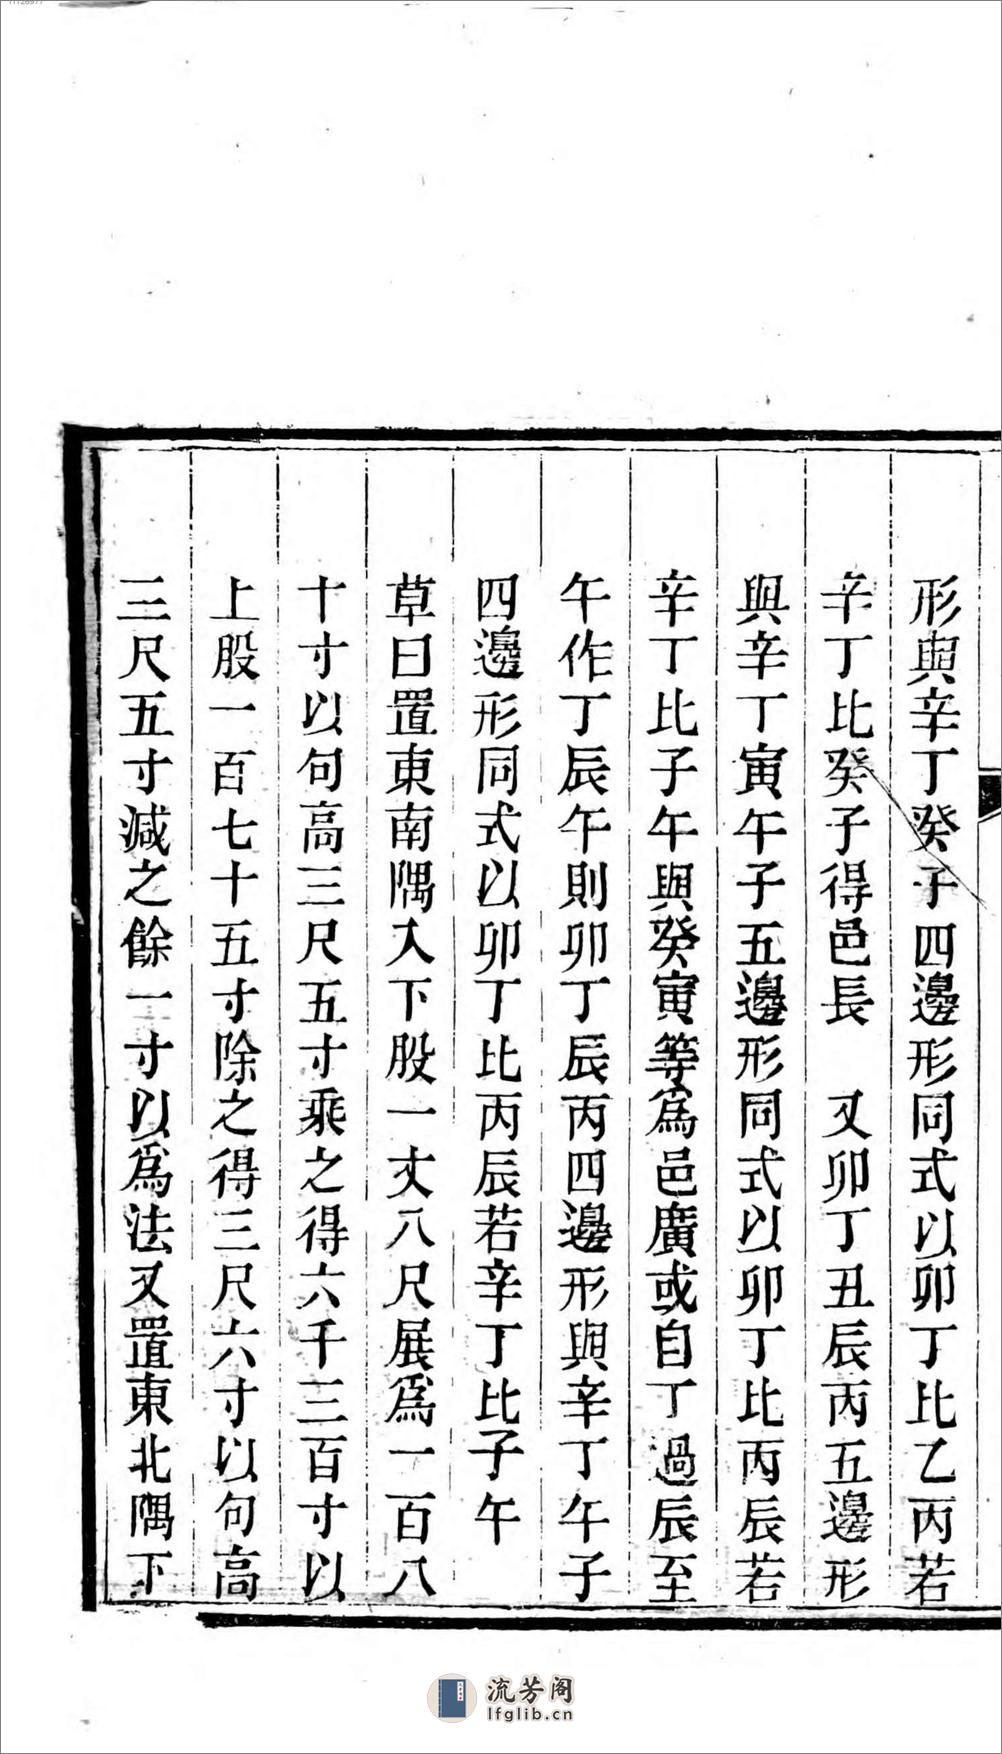 形與辛丁癸子四邊形同式以卯丁比乙丙若
辛丁比癸子得邑長　又卯丁丑辰丙五邊形
與辛丁寅午子五邊形同式以卯丁比丙辰若
辛丁比子午與癸寅等爲邑廣或自丁過辰至
午作丁辰午則卯丁辰丙四邊形與辛丁午子
四邊形同式以卯丁比丙辰若辛丁比子午
草曰置東南隅入下股一丈八尺展爲一百八
十寸以句高三尺五寸乘之得六千三百寸以
上股一百七十五寸除之得三尺六寸以句高
三尺五寸減之餘一寸以爲法又置東北隅下
流芳阁
lfglib.cn